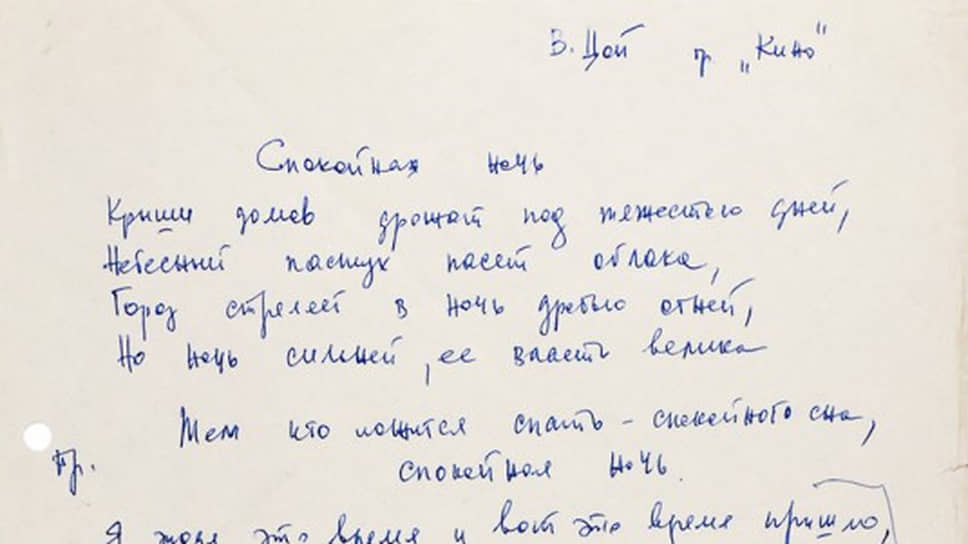 В. Цой гр „Кино“
Спокойная ночь
Крыши домов дрожат под тяжестью дней,
Небесный пастух пасет облака,
Город стреляет в ночь дробью огней,
Но ночь сильней, ее власть велика
Тем кто ложится спать – спокойного сна,
Пр. спокойная ночь.
Я ждал это время и вот это время пришло,